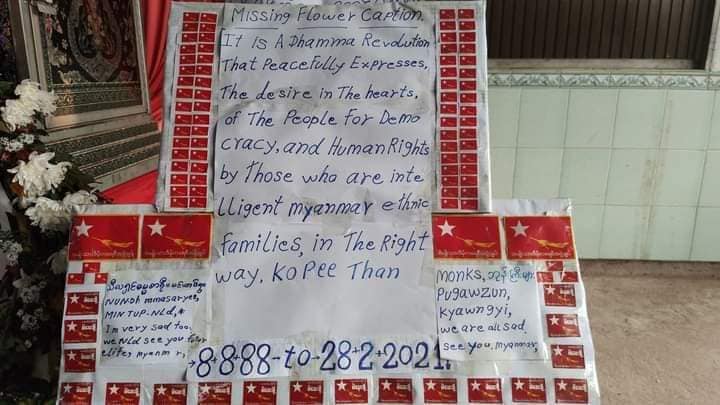 Missing Flower Caption.
It Is A Dhamma Revolution
That Peacefully Expresses,
The desire in The hearts,
of The People For Demo
cracy, and Human Rights
by Those who are inte
lligent myanmar ethnic
families, in The Right
way, Ko Pee Than
NUNDh mmasaryee,
MIN TUP-NLd,
Im very sad too,
we NLd see you
elites, myanm r,
monks,
Pugawzun,
Kyawngyi,
we are all sad
see you, myanmar,
8+8+88-to-28+2+2021